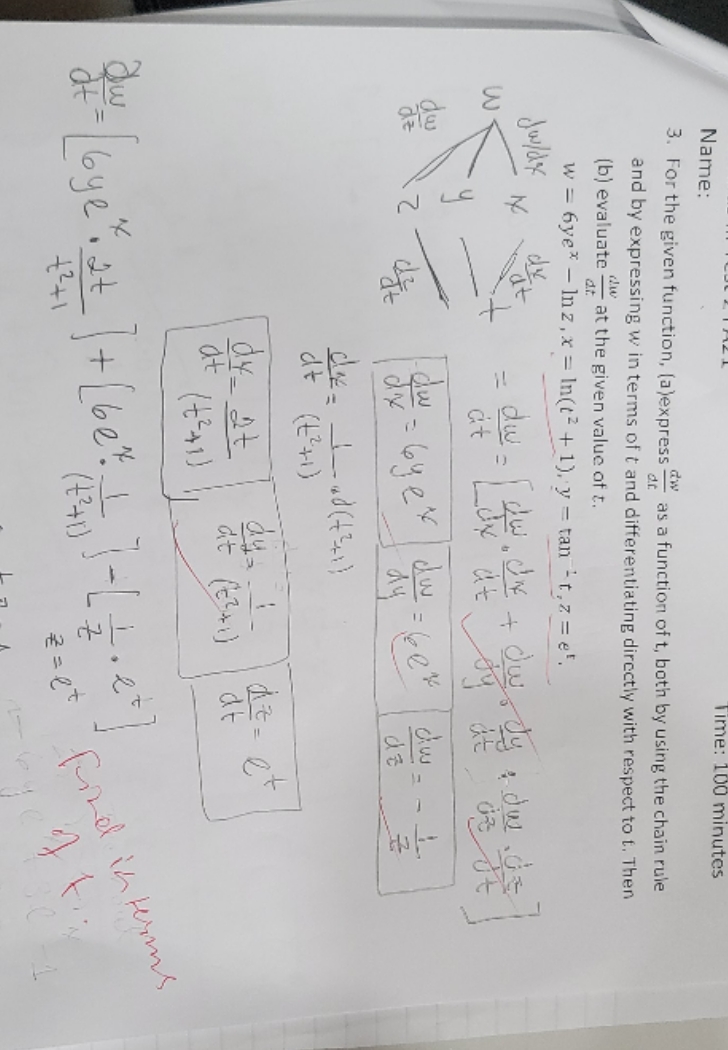 Name:
Time: 100 minutes
3. For the given function, (a)express dw/dt as a function of t, both by using the chain rule
and by expressing w in terms of t and differentiating directly with respect to t. Then
(b) evaluate dw/dt at the given value of t.
w = 6ye^x − ln z, x = ln(t² + 1), y = tan⁻¹ t, z = e^t.
w dw/dx x dx/dt t
y
dw/dz z dz/dt
= dw/dt = [dw/dx · dx/dt + dw/dy · dy/dt + dw/dz · dz/dt]
dw/dx = 6ye^x dw/dy = 6e^x dw/dz = - 1/z
dx/dt = 1/(t²+1) · d(t²+1)
dx/dt = 2t/(t²+1) dy/dt = 1/(t²+1) dz/dt = e^t
dw/dt = [6ye^x · 2t/t²+1] + [6e^x · 1/(t²+1)] - [1/z · e^t]
z = e^t
find in terms
of t